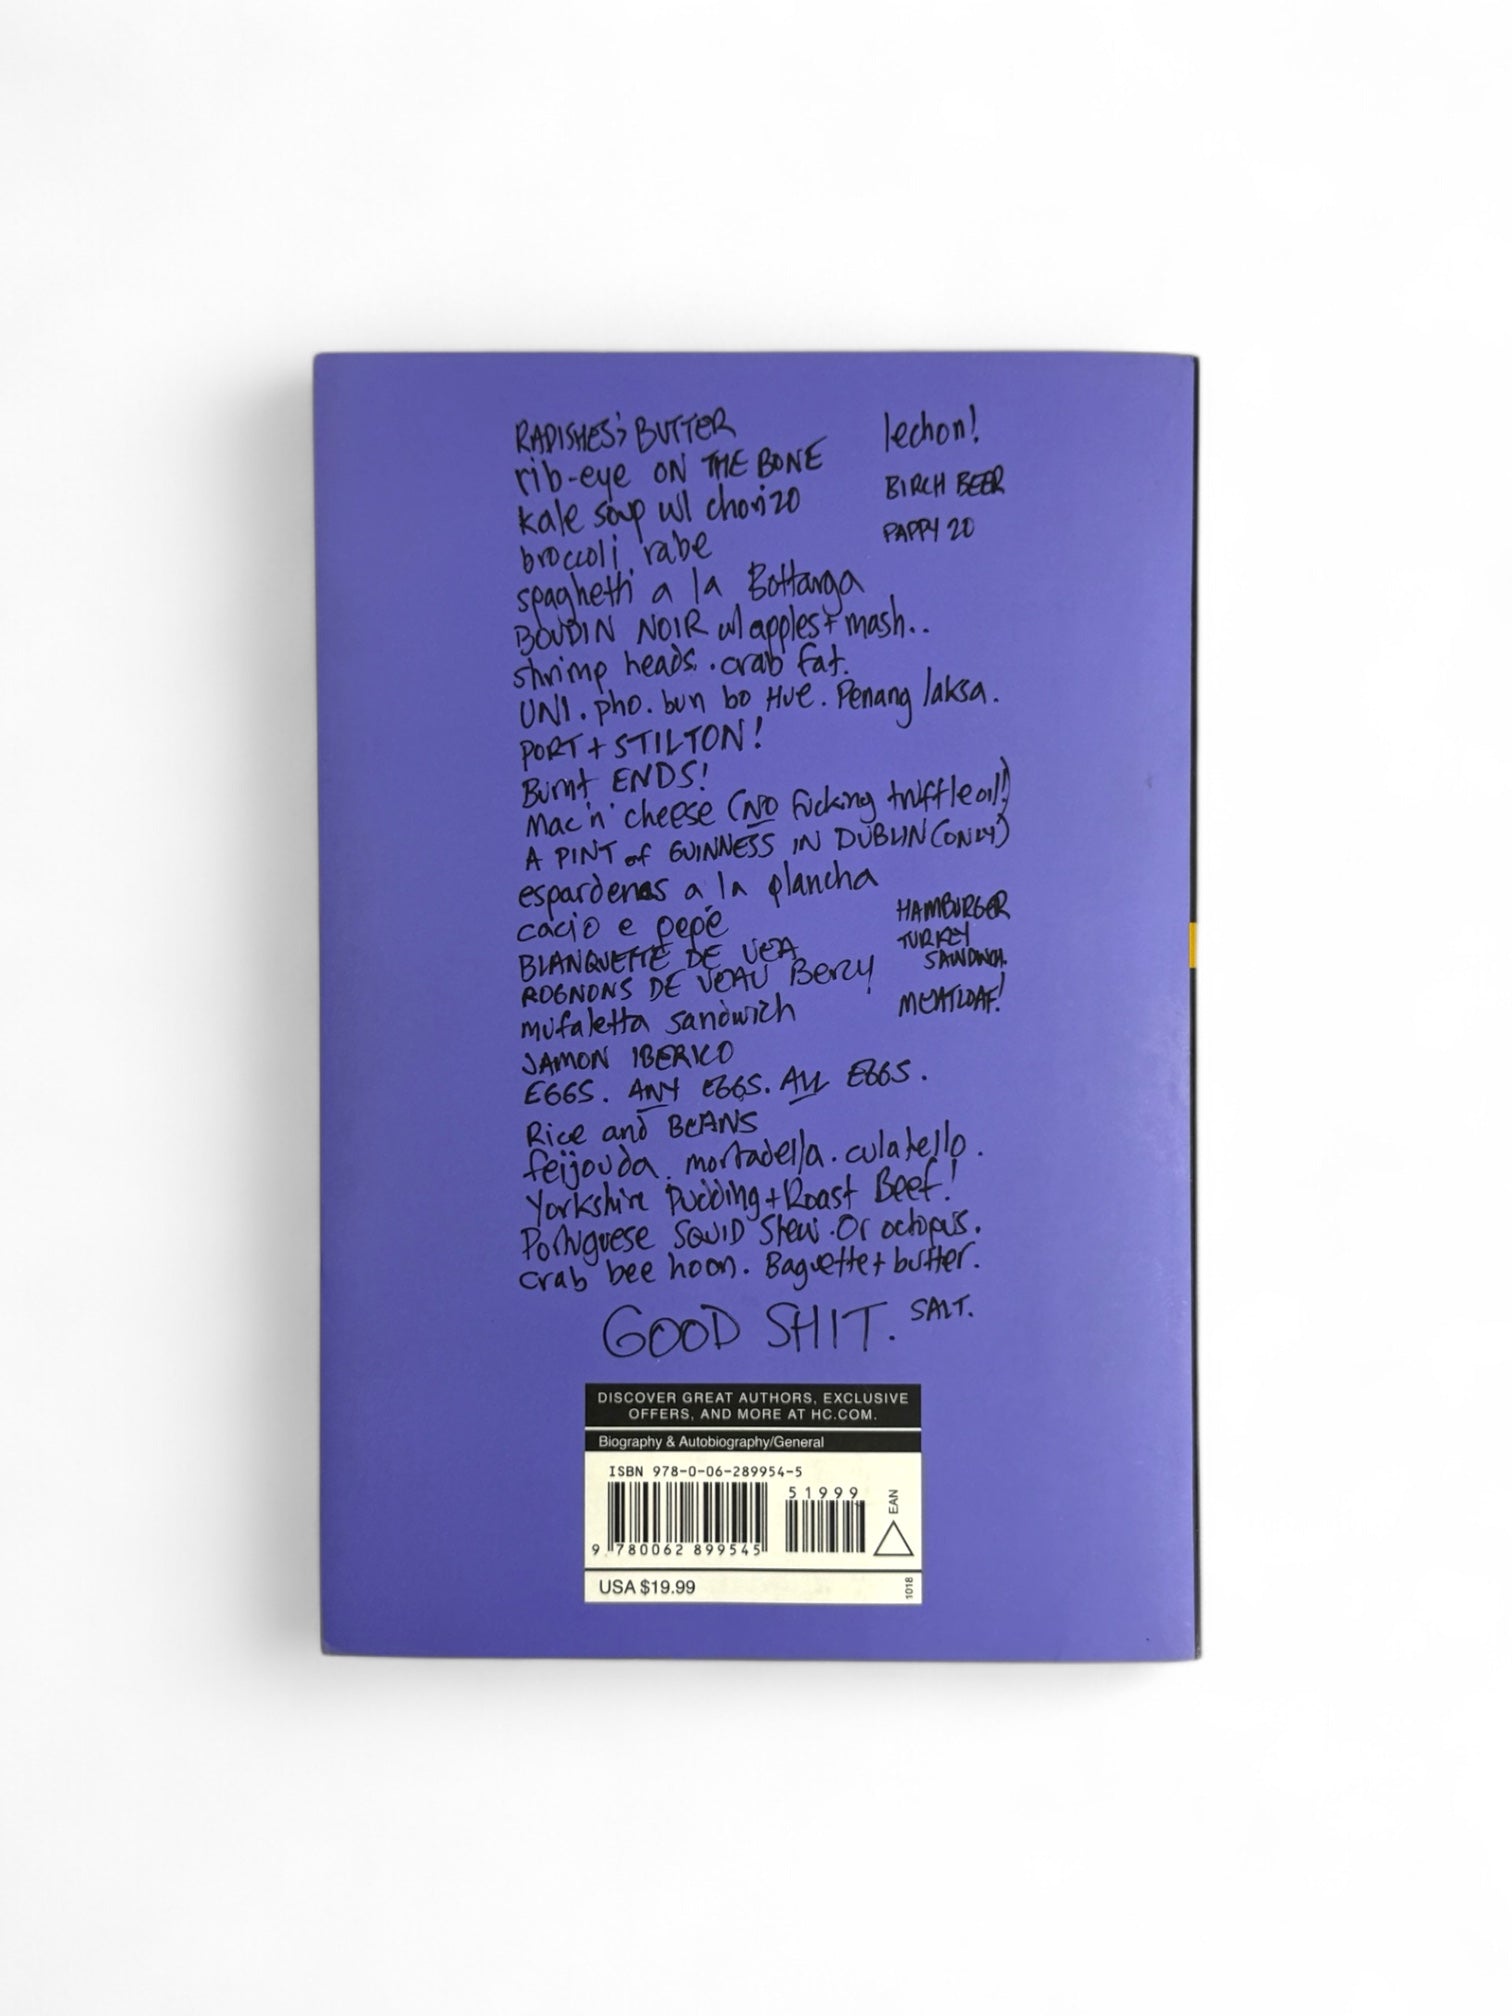 RADISHES; BUTTER
rib-eye ON THE BONE
kale soup w/ chorizo
broccoli rabe
spaghetti a la Bottarga
BOUDIN NOIR w/ apples + mash..
shrimp heads. crab fat.
UNI. pho. bun bo Hue. Penang laksa.
PORT + STILTON!
Burnt ENDS!
Mac 'n' cheese (NO fucking truffle oil!)
A PINT of GUINNESS IN DUBLIN (ONLY)
espardenas a la plancha
cacio e pepe
BLANQUETTE DE VEA
ROGNONS DE VEAU Bercy
mufaletta sandwich
JAMON IBERICO
EGGS. ANY EGGS. All EGGS.
Rice and BEANS
feijouda. mortadella. culatello.
Yorkshire Pudding + Roast Beef!
Portuguese SQUID Stew. Or octopus.
crab bee hoon. Baguette + butter.
GOOD SHIT. SALT.
lechon!
BIRCH BEER
PAPPY 20
HAMBURGER
TURKEY
SANDWCH.
MEATLOAF!
DISCOVER GREAT AUTHORS, EXCLUSIVE
OFFERS, AND MORE AT HC.COM.
Biography & Autobiography/General
ISBN 978-0-06-289954-5
51999
EAN
9 780062 899545
USA $19.99
1018